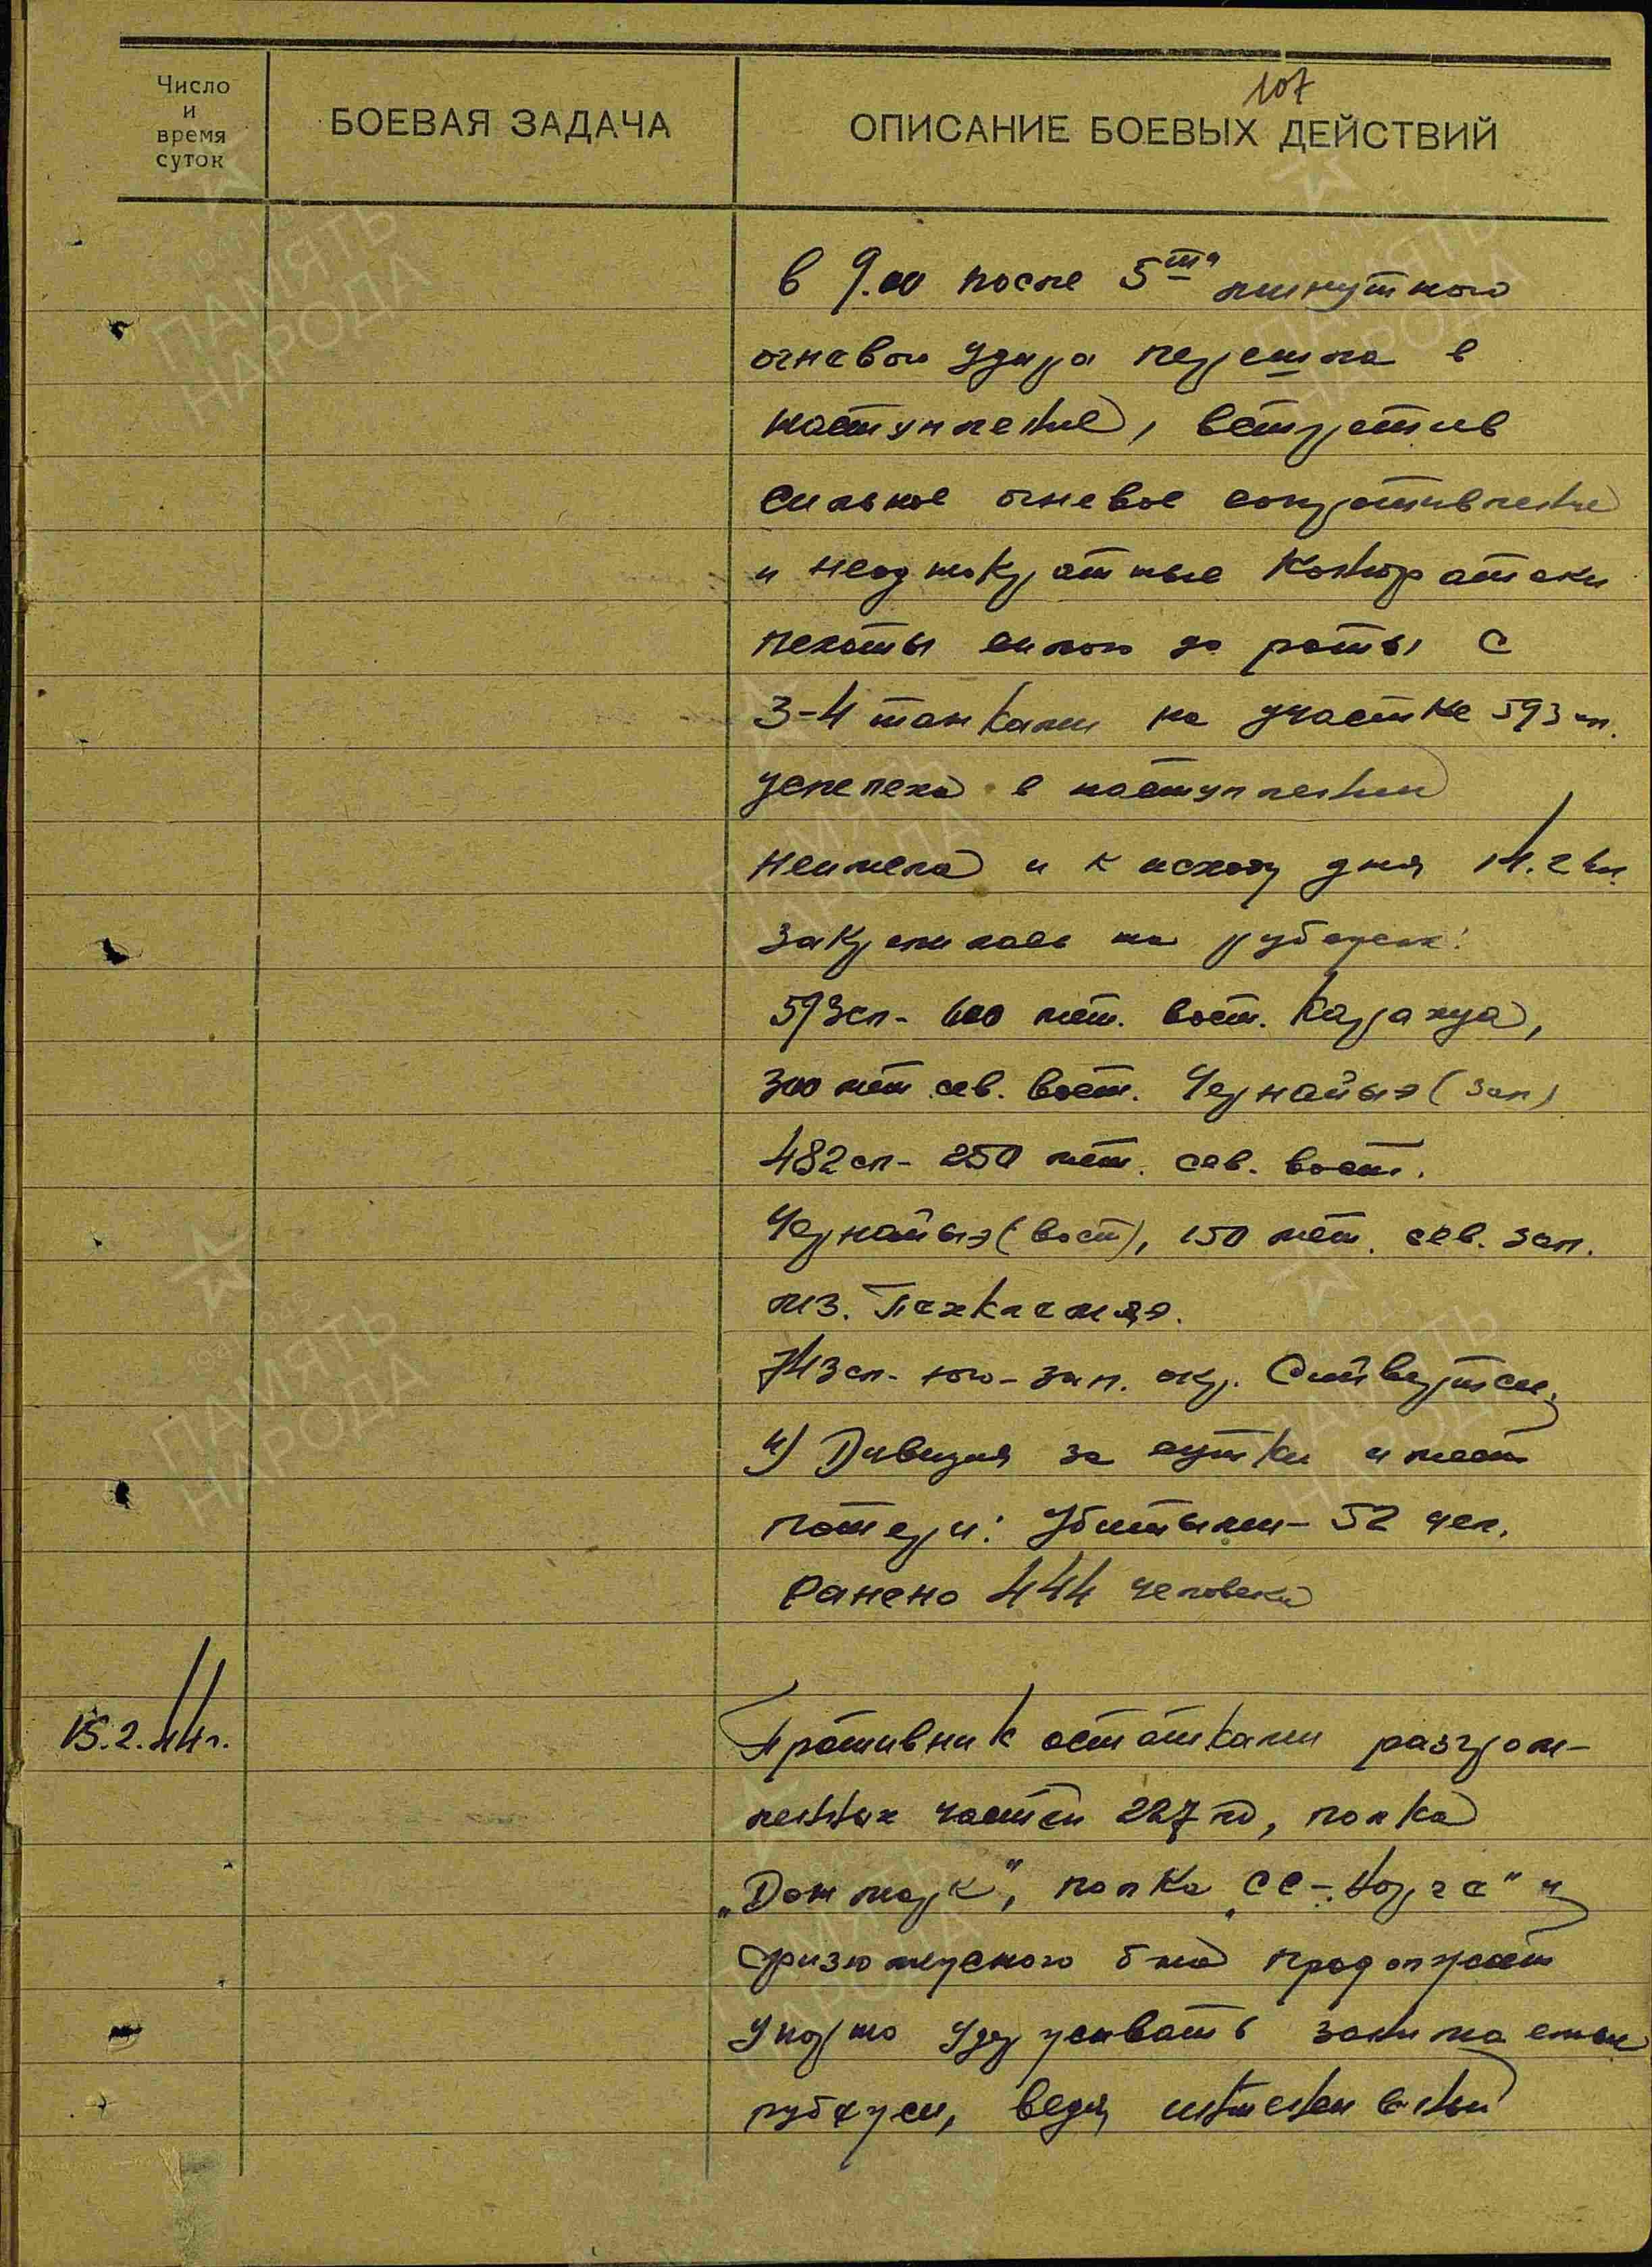 107
Число
и
время
суток
БОЕВАЯ ЗАДАЧА
ОПИСАНИЕ БОЕВЫХ ДЕЙСТВИЙ
в 9.00 после 5ти минутного
огневого удара перешла в
наступление, встретив
сильное огневое сопротивление
и неоднократные контратаки
пехоты силою до роты с
3-4 танками на участке 593 сп.
успеха в наступлении
неимела и к исходу дня 14.2
закрепилась на рубеже:
593сп- 600 мет. вост. Карахуа,
300 мет сев. вост. Чернайыэ (зап)
482сп- 250 мет. сев. вост.
Чернайыэ (вост), 150 мет. сев. зап.
мз.
743сп- юго-зап. окр. Сийвертси,
4) Дивизия за сутки имеет
потери: Убитыми- 52 чел.
Ранено 444 человека
15.2.44г.
Противник остатками разгром-
ленных частей 227 пд, полка
„Данмарк", полка „СС-Норге" и
физилерного б-на продолжает
упорно удерживать занимаемые
рубежи, ведя интенсивный
ПАМЯТЬ
НАРОДА
ПАМЯТЬ
НАРОДА
ПАМЯТЬ
НАРОДА
ПАМЯТЬ
НАРОДА
ПАМЯТЬ
НАРОДА
ПАМЯТЬ
НАРОДА